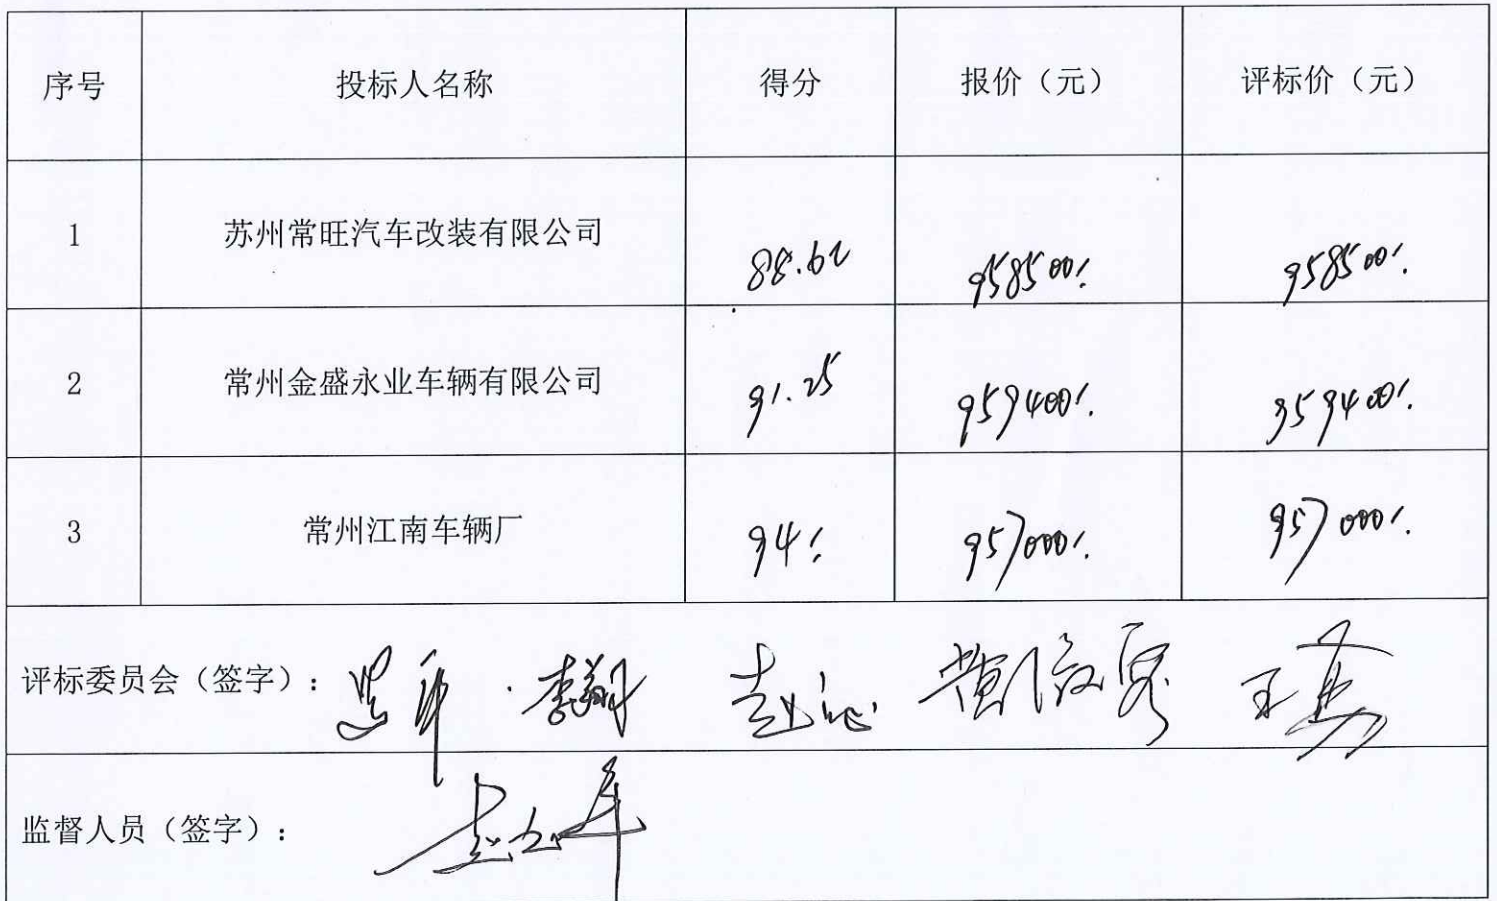 序号 投标人名称 得分 报价（元） 评标价（元）
1 苏州常旺汽车改装有限公司 88.62 958500/. 958500/.
2 常州金盛永业车辆有限公司 91.25 959400/. 959400/.
3 常州江南车辆厂 94/. 957000/. 957000/.
评标委员会（签字）： 李翔
监督人员（签字）：